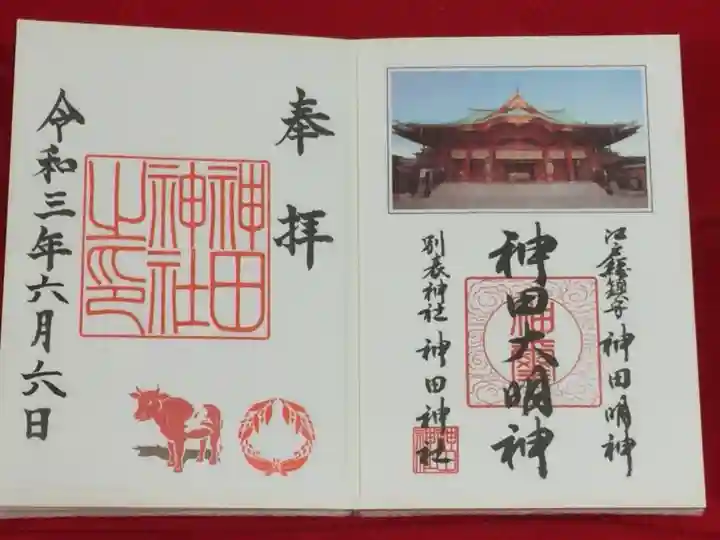 江戸総鎮守 神田明神
神田大明神
別表神社 神田神社
神田
神社
奉拝
神田
神社
之印
令和三年六月六日